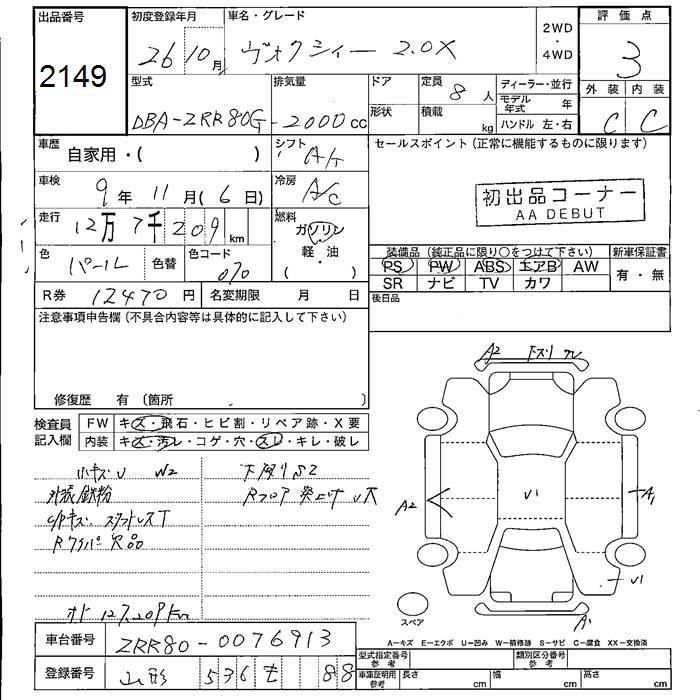 出品番号
2149
初度登録年月
26 10月
車名・グレード
ヴォクシィー 2.0X
2WD
・
4WD
評価点
3
型式
DBA-ZRR80G
排気量
2000cc
ドア
形状
定員
8人
積載
kg
ディーラー・並行
モデル年式 年
ハンドル 左・右
外装 内装
C C
車歴
自家用・( )
シフト
A/T
セールスポイント (正常に機能するものに限ります)
車検
9年 11月(6日)
冷房
A/C
初出品コーナー
AA DEBUT
走行
12万 7千 209 km
燃料
ガソリン
軽・油
( )
色
パール
色替
色コード
070
装備品 (純正品に限り○をつけて下さい)
新車保証書
PS PW ABS エアB AW
SR ナビ TV カワ
有・無
R券 12470円
名変期限 月 日
後日品
注意事項申告欄 (不具合内容等は具体的に記入して下さい)
修復歴 有 (箇所 )
検査員記入欄
FW キズ・飛石・ヒビ割・リペア跡・X要
内装 キズ・汚レ・コゲ・穴・スレ・キレ・破レ
小キズU W2
外装鉄粉
Rワイパー欠品
オド 127,209km
A2
A2
U1
A1
U1
A1
スペア
A-キズ E-エクボ U-凹み W-補修跡 S-サビ C-腐食 XX-交換済
車台番号
ZRR80-0076913
登録番号
山形 536 88
型式指定番号 参考
類別区分番号 参考
車庫証明用 参考
長さ cm
幅 cm
高さ cm